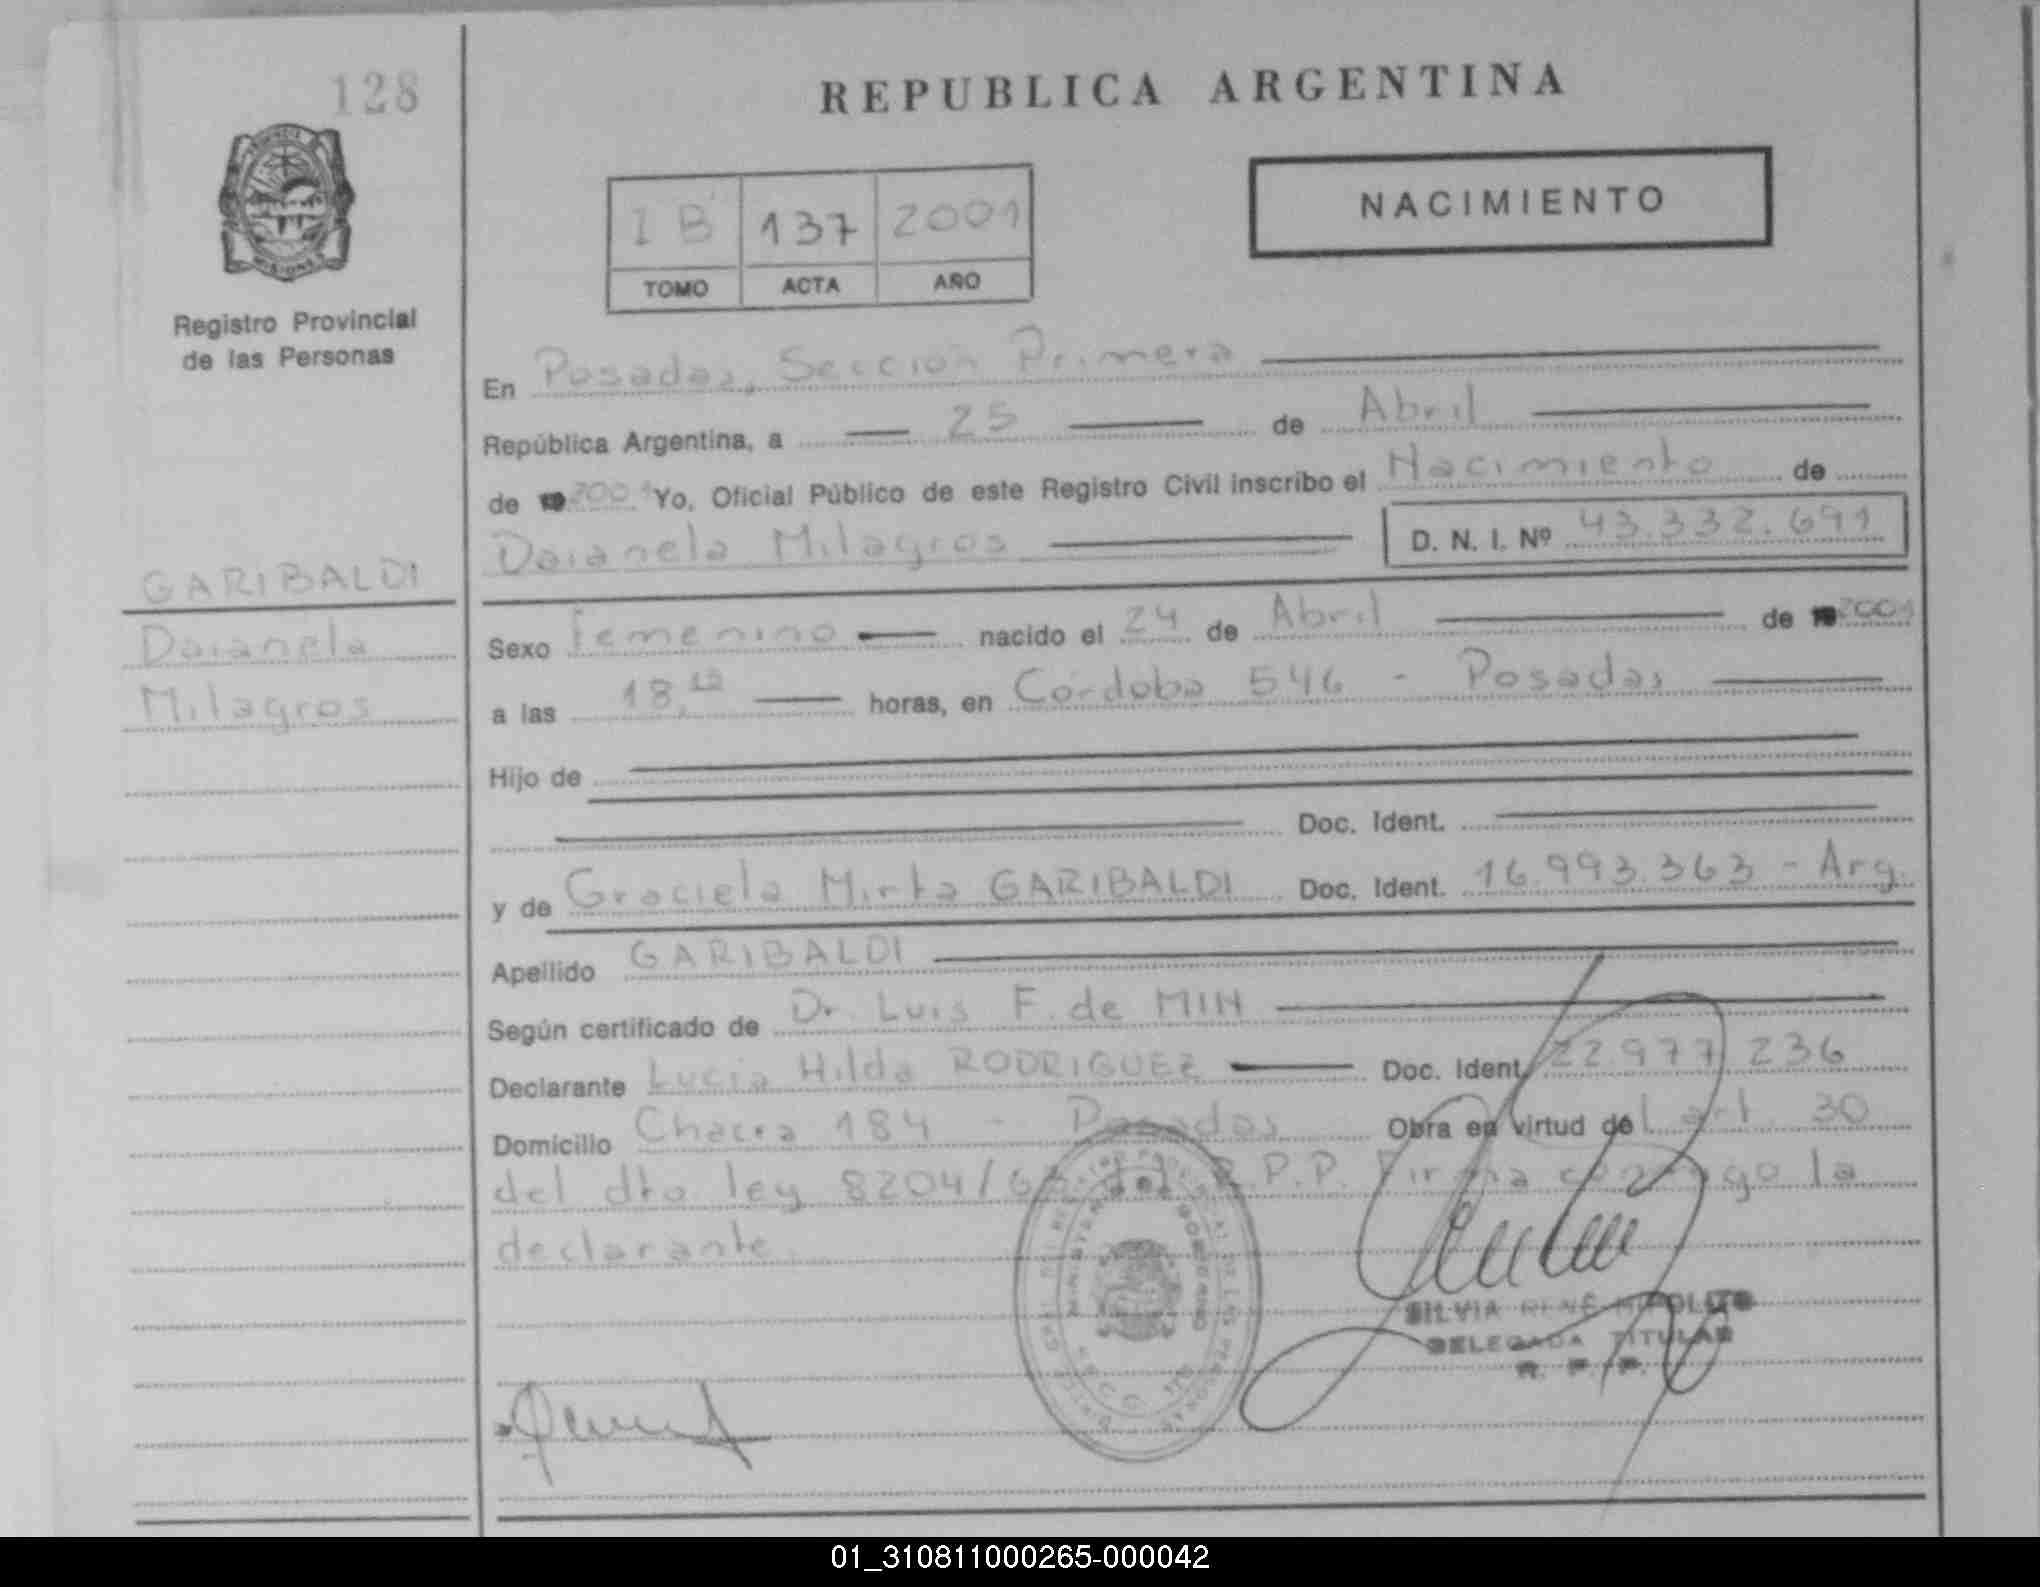 128
REPUBLICA ARGENTINA
NACIMIENTO
I B 137 2001
TOMO ACTA AÑO
Registro Provincial
de las Personas
En Posadas, Sección Primera
República Argentina, a 25 de Abril
de 2001 Yo, Oficial Público de este Registro Civil inscribo el Nacimiento de
Daianela Milagros D. N. I. Nº 43.332.691
GARIBALDI
Daianela
Milagros
Sexo Femenino nacido el 24 de Abril de 2001
a las 18,10 horas, en Córdoba 546 - Posadas
Hijo de
Doc. Ident.
y de Graciela Mirta GARIBALDI Doc. Ident. 16.993.363 - Arg.
Apellido GARIBALDI
Según certificado de Dr. Luis F. de MIN
Declarante Lucia Hilda RODRIGUEZ Doc. Ident. 22977 236
Domicilio Chacra 184 - Posadas Obra en virtud del art. 30
del dto ley 8204/63 del R.P.P. Firma conmigo la
declarante.
SILVIA RENÉ HIPOLITO
DELEGADA TITULAR
R. P. P.
01_310811000265-000042